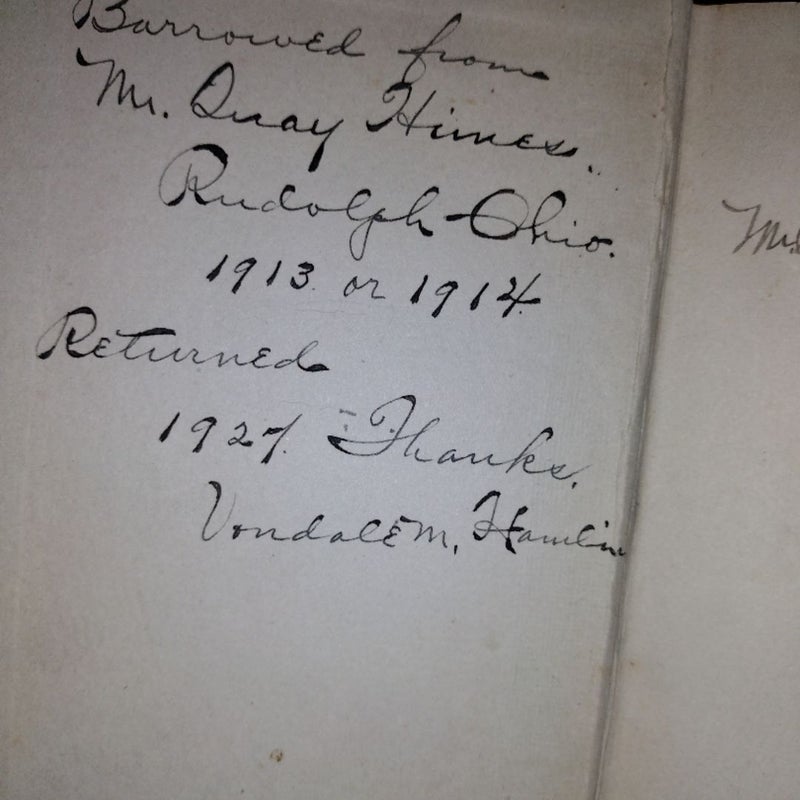 Borrowed from
Mr. Quay Himes.
Rudolph-Ohio.
1913 or 1914
Returned
1927. Thanks.
Vondale M. Hamlin